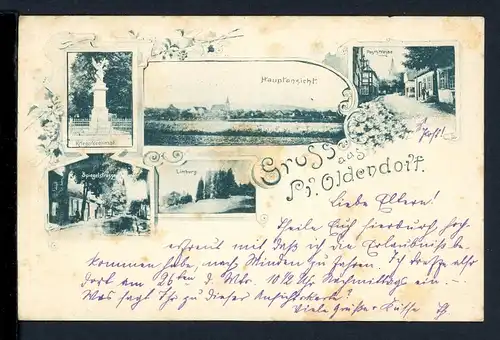 Kriegerdenkmal
Hauptansicht.
Spiegelstrasse
Limberg
Gruss
aus
Pr. Oldendorf.
Liebe Eltern!
Theile Euch hierdurch hoch-
erfreut mit daß ich die Erlaubniß be-
kommen habe, nach Minden zu fahren. Ich treffe also
dort am 26ten d. Mts. 10 1/2 Uhr Nachmittags ein. –
Was sagt Ihr zu dieser Ansichtskarte?
Viele Grüße & Küsse